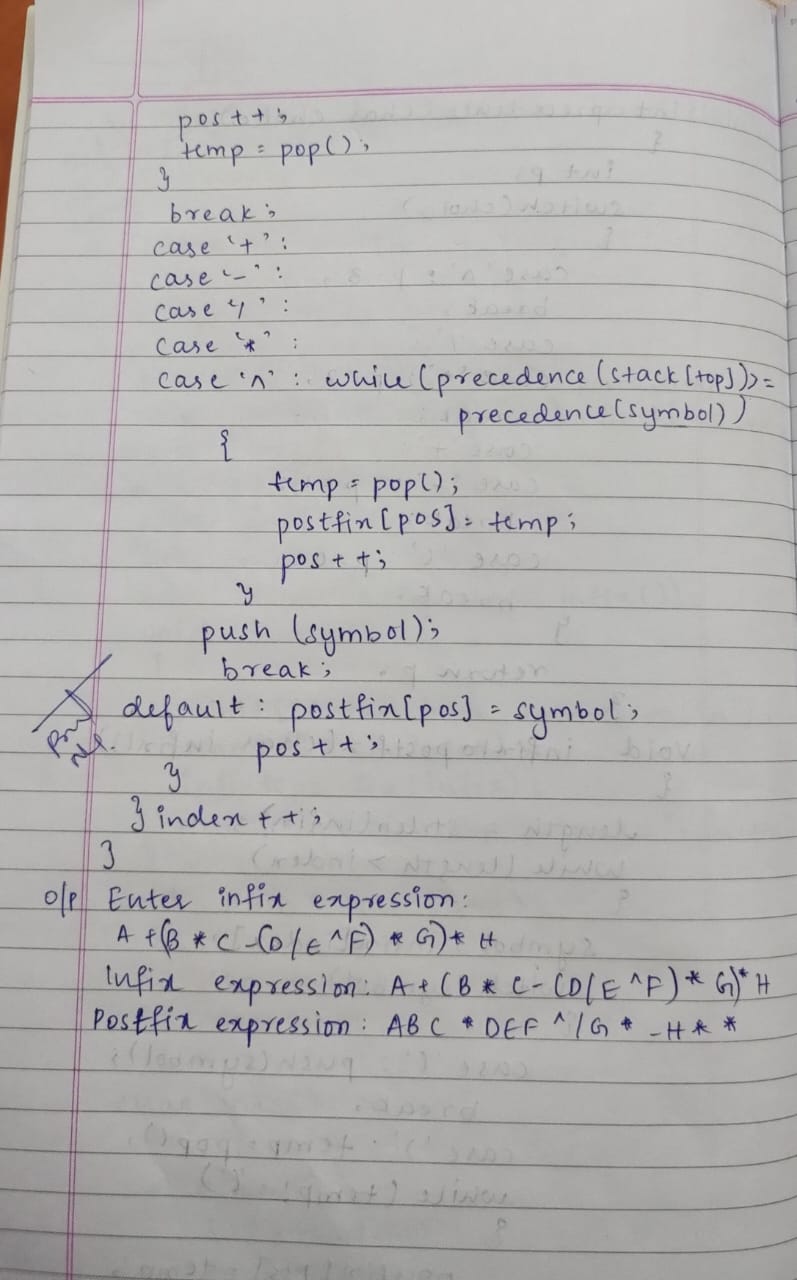 pos++;
temp = pop();
}
break;
case '+':
case '-':
case '/':
case '*':
case '^': while (precedence (stack [top]) >=
precedence (symbol))
{
temp = pop();
postfix [pos] = temp;
pos++;
}
push (symbol);
break;
default: postfix [pos] = symbol;
pos++;
}
} index ++;
}
o/p Enter infix expression:
A + (B * C - (D/E^F) * G) * H
Infix expression: A + (B * C - (D/E^F) * G) * H
Postfix expression: ABC * DEF ^/G * - H * *